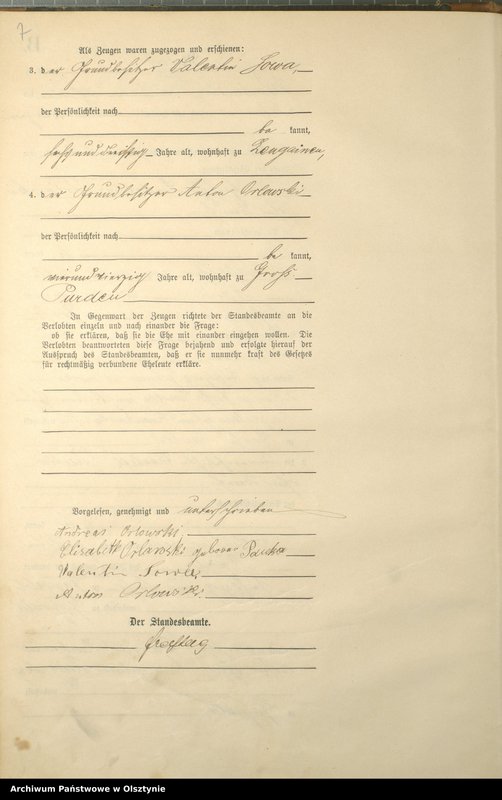 7
Als Zeugen waren zugezogen und erschienen:
3. der Grundbesitzer Valentin Sowa,
der Persönlichkeit nach
be kannt,
sechs und dreißig Jahre alt, wohnhaft zu
4. der Grundbesitzer Anton Orlowski
der Persönlichkeit nach
be kannt,
vierundvierzig Jahre alt, wohnhaft zu Groß
Purden
In Gegenwart der Zeugen richtete der Standesbeamte an die
Verlobten einzeln und nach einander die Frage:
ob sie erklären, daß sie die Ehe mit einander eingehen wollen. Die
Verlobten beantworteten diese Frage bejahend und erfolgte hierauf der
Ausspruch des Standesbeamten, daß er sie nunmehr kraft des Gesetzes
für rechtmäßig verbundene Eheleute erkläre.
Vorgelesen, genehmigt und unterschrieben
Andreas Orlowski
Elisabeth Orlowski geboren
Valentin Sowa
Anton Orlowski
Der Standesbeamte.
Freytag
Archiwum Państwowe w Olsztynie